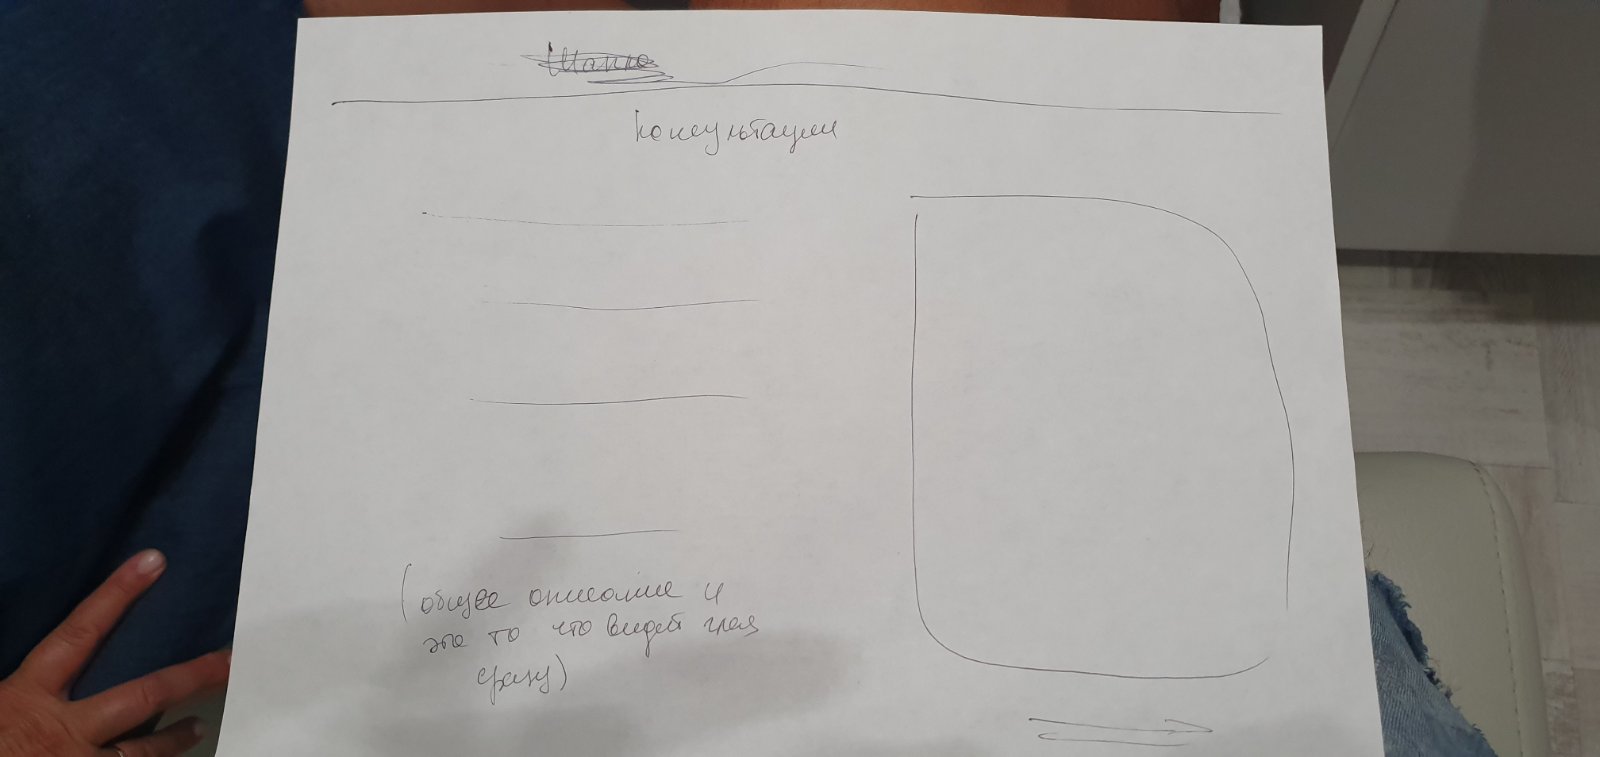 Шапка
Консультации
(общее описание и
это то что видит глаз
сразу)